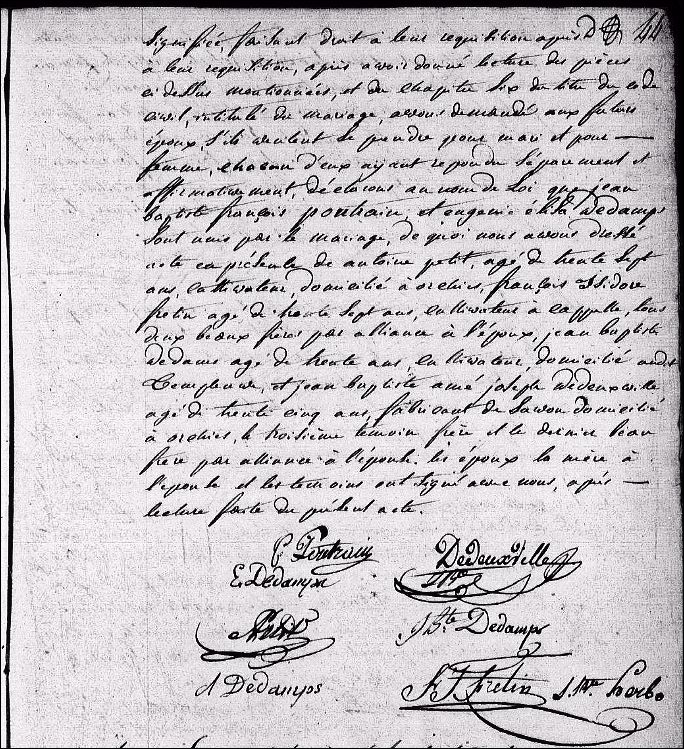 44
signifiée, faisant droit à leur requisition après
à leur requisition, après avoir donné lecture des pièces
ci dessus mentionnées, et du chapitre six du titre du code
civil, intitulé du mariage, avons demandé aux futurs
époux s'ils veulent se prendre pour mari et pour —
femme, chacun d'eux ayant repondu séparement et
affirmativement, déclarons au nom de Loi que jean
baptiste françois pontrain, et eugenie élisa Dedamps
sont unis par le mariage, de quoi nous avons dressé
acte en présence de antoine petit, agé de trente sept
ans, cultivateur, domicilié à orchies, françois Isidore
fretin agé de trente sept ans, cultivateur à cappelle, tous
deux beaux frères par alliance à l'époux, jean baptiste
Dedams agé de trente ans, cultivateur, domicilié audit
Templeuve, et jean baptiste amé joseph Dedeuxville
agé de trente cinq ans, fabricant de savon domicilié
à orchies, le troisième temoin frère et le dernier beau
frère par alliance à l'épouse. les époux la mère à
l'épouse et les temoins ont signé avec nous, après —
lecture faite du présent acte.
Pontrain Dedeuxville
E. Dedamps
J Bte Dedamps
A Dedamps F. I. Fretin